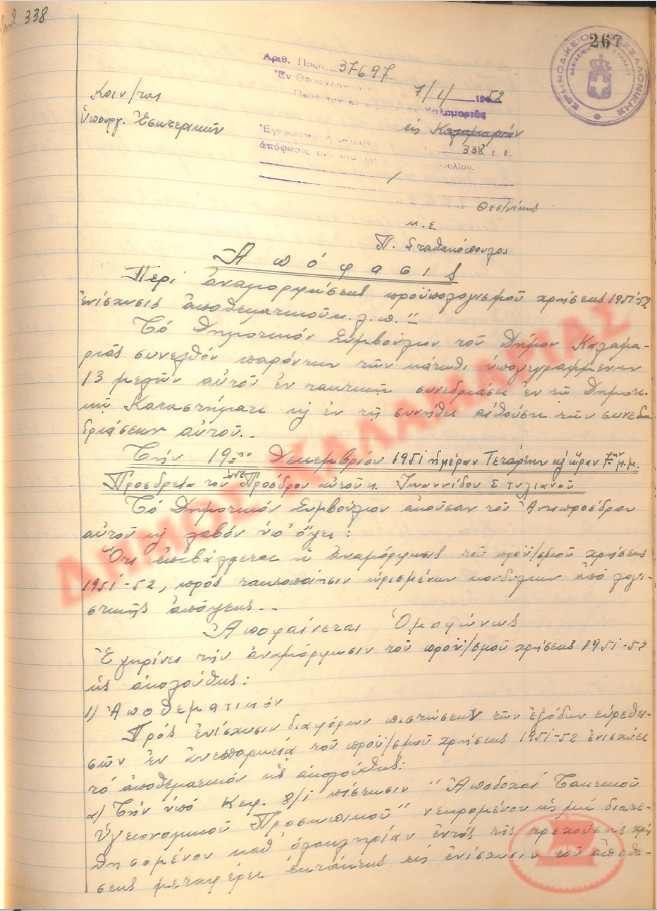 338
267
ΕΙΡΗΝΟΔΙΚΕΙΟ ΘΕΣΣΑΛΟΝΙΚΗΣ
Αριθ. Πρωτ. 37697
7/1/1952
Κοιν/ται
Ὑπουργ. Ἐσωτερικῶν
338
ἀπόφασις
Θεσ/νίκης
μ. ε.
Π. Σταθακόπουλος
Ἀπόφασις
Περί ἀναμορφώσεως προϋπολογισμοῦ χρήσεως 1951-52
ἐνίσχυσις ἀποθεματικοῦ κ.λ.π."
Τό Δημοτικόν Συμβούλιον τοῦ Δήμου Καλαμα-
ριᾶς συνελθόν παρόντων τῶν κάτωθι ὑπογεγραμμένων
13 μελῶν αὐτοῦ ἐν τακτικῇ συνεδριάσει ἐν τῷ Δημοτι-
κῷ Καταστήματι κ ἐν τῇ συνήθει αἰθούσῃ τῶν συνε
δριάσεων αὐτοῦ..
Τήν 19ην Δεκεμβρίου 1951 ἡμέραν Τετάρτην κ ὥραν 7ην μ.μ.
Προεδρεία τοῦ Ἀντιπροέδρου αὐτοῦ κ. Ἰωαννίδου Στυλιανοῦ
Τό Δημοτικόν Συμβούλιον ἀκοῦσαν τοῦ Ἀντιπροέδρου
αὐτοῦ κ λαβόν ὑπ' ὄψει:
Ὅτι ἐπιβάλλεται ἡ ἀναμόρφωσις τοῦ προϋ/σμοῦ χρήσεως
1951-52, πρός τακτοποίησιν ὡρισμένων κονδυλίων ἀπό λογι-
στικῆς ἀπόψεως..
Ἀποφαίνεται Ὁμοφώνως
Ἐγκρίνει τήν ἀναμόρφωσιν τοῦ προϋ/σμοῦ χρήσεως 1951-52
ὡς ἀκολούθως:
1) Ἀποθεματικόν
Πρός ἐνίσχυσιν διαφόρων πιστώσεων τῶν ἐξόδων εὑρεθει-
σῶν ἐν ἀνεπαρκείᾳ τοῦ προϋ/σμοῦ χρήσεως 1951-52 ἐνισχύει
τό ἀποθεματικόν ὡς ἀκολούθως:
α) Τήν ὑπό Κεφ. 8/1 πίστωσιν "Ἀποδοχαί Τακτικοῦ
Ὑγειονομικοῦ Προσωπικοῦ" ὡς μή διατε-
θησομένου καθ' ὁλοκληρίαν ἐντός τῆς τρεχούσης χρή
σεως μεταφέρει ἐκτάκτως εἰς ἐνίσχυσιν τοῦ ἀποθε-
ΔΗΜΟΣ ΚΑΛΑΜΑΡΙΑΣ